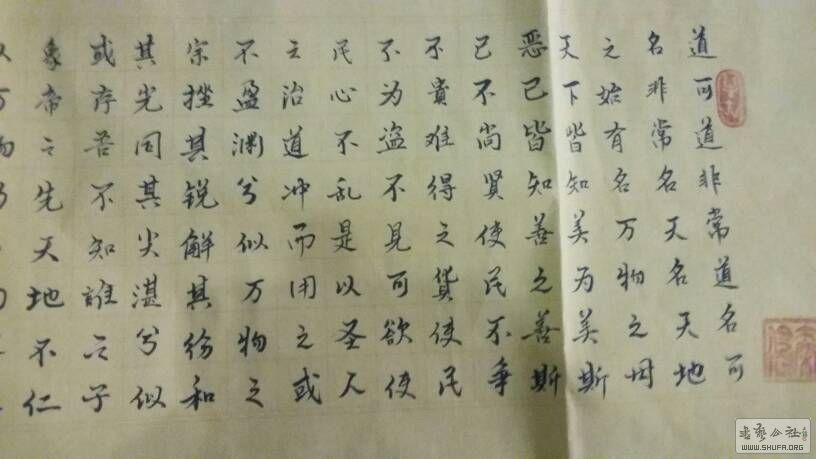 道可道非常道名可
名非常名天名天地
之始有名万物之母
天下皆知美为美斯
恶已皆知善之善斯
已不尚贤使民不争
不贵难得之货使民
不为盗不见可欲使
民心不乱是以圣人
之治道冲而用之或
不盈渊兮似万物之
宗挫其锐解其纷和
其光同其尖湛兮似
或存吾不知谁之子
象帝之先天地不仁
以万物
书艺公社
WWW.SHUFA.ORG